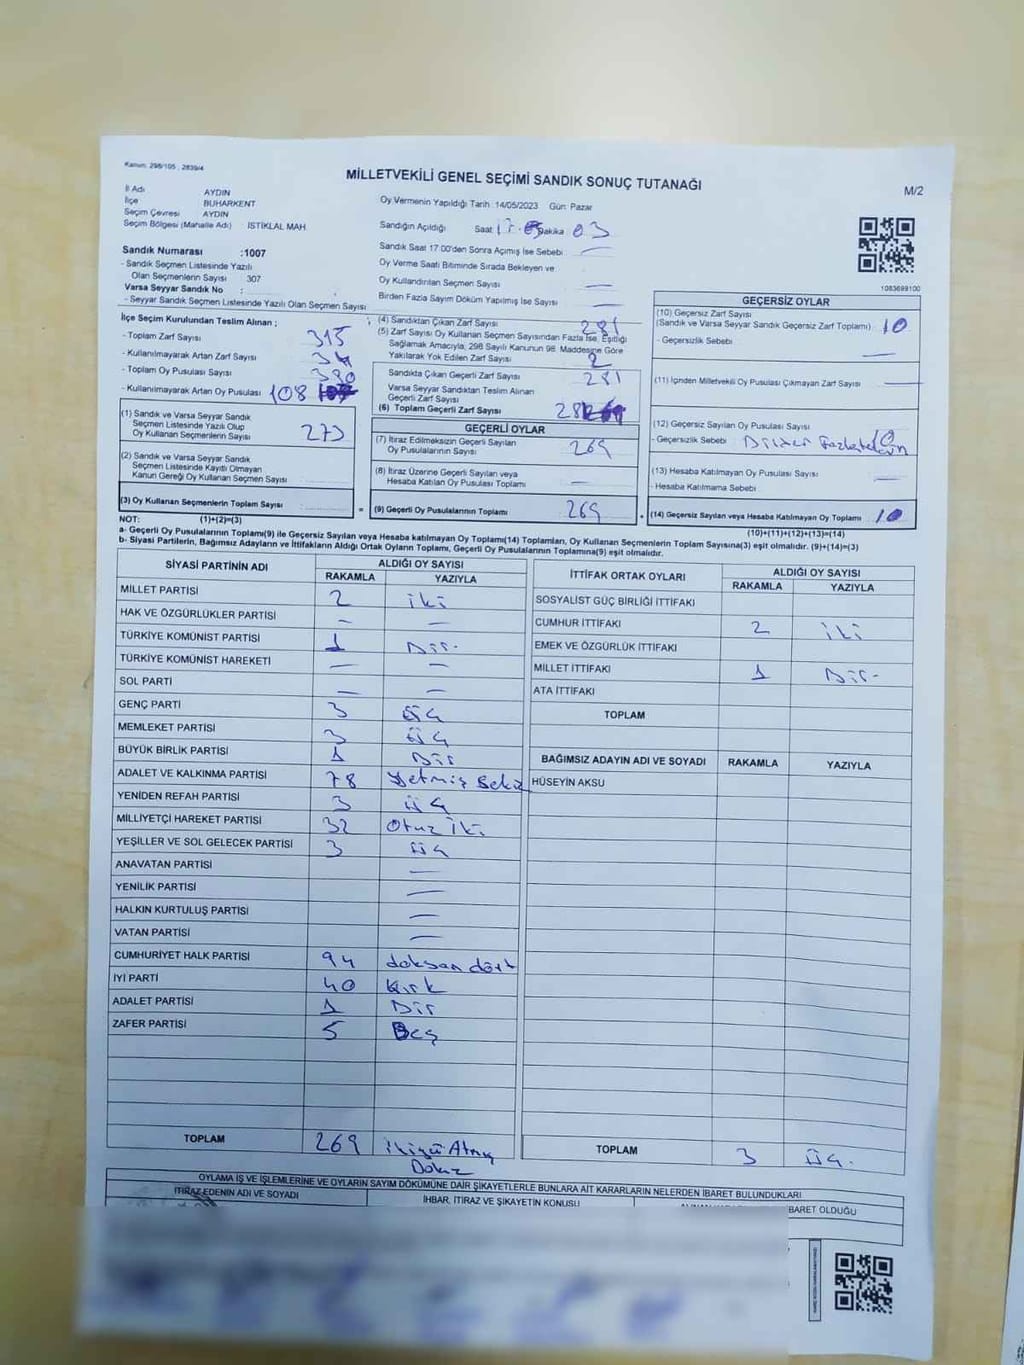 Kanun: 298/105 , 2839/4
MİLLETVEKİLİ GENEL SEÇİMİ SANDIK SONUÇ TUTANAĞI
M/2
İl Adı AYDIN
İlçe BUHARKENT
Seçim Çevresi AYDIN
Seçim Bölgesi (Mahalle Adı) İSTİKLAL MAH
Oy Vermenin Yapıldığı Tarih :14/05/2023 Gün: Pazar
Sandığın Açıldığı Saat Dakika 03
Sandık Saat 17:00'den Sonra Açımış İse Sebebi —
Oy Verme Saati Bitiminde Sırada Bekleyen ve
Oy Kullandırılan Seçmen Sayısı —
Birden Fazla Sayım Döküm Yapılmış İse Sayısı —
Sandık Numarası :1007
- Sandık Seçmen Listesinde Yazılı
Olan Seçmenlerin Sayısı 307
Varsa Seyyar Sandık No :
- Seyyar Sandık Seçmen Listesinde Yazılı Olan Seçmen Sayısı
1083699100
İlçe Seçim Kurulundan Teslim Alınan ;
- Toplam Zarf Sayısı 315
- Kullanılmayarak Artan Zarf Sayısı 34
- Toplam Oy Pusulası Sayısı 380
- Kullanılmayarak Artan Oy Pusulası 108
(1) Sandık ve Varsa Seyyar Sandık
Seçmen Listesinde Yazılı Olup
Oy Kullanan Seçmenlerin Sayısı 279
(2) Sandık ve Varsa Seyyar Sandık
Seçmen Listesinde Kayıtlı Olmayan
Kanun Gereği Oy Kullanan Seçmen Sayısı
(3) Oy Kullanan Seçmenlerin Toplam Sayısı
(1)+(2)=(3)
(4) Sandıktan Çıkan Zarf Sayısı 281
(5) Zarf Sayısı Oy Kullanan Seçmen Sayısından Fazla İse, Eşitliği
Sağlamak Amacıyla, 298 Sayılı Kanunun 98. Maddesine Göre
Yakılarak Yok Edilen Zarf Sayısı 2
Sandıkta Çıkan Geçerli Zarf Sayısı 281
Varsa Seyyar Sandıktan Teslim Alınan
Geçerli Zarf Sayısı
(6) Toplam Geçerli Zarf Sayısı
GEÇERLİ OYLAR
(7) İtiraz Edilmeksizin Geçerli Sayılan
Oy Pusulalarının Sayısı 269
(8) İtiraz Üzerine Geçerli Sayılan veya
Hesaba Katılan Oy Pusulası Toplamı
(9) Geçerli Oy Pusulalarının Toplamı 269
GEÇERSİZ OYLAR
(10) Geçersiz Zarf Sayısı
(Sandık ve Varsa Seyyar Sandık Geçersiz Zarf Toplamı) 10
- Geçersizlik Sebebi —
(11) İçinden Milletvekili Oy Pusulası Çıkmayan Zarf Sayısı —
(12) Geçersiz Sayılan Oy Pusulası Sayısı 10
- Geçersizlik Sebebi
(13) Hesaba Katılmayan Oy Pusulası Sayısı —
- Hesaba Katılmama Sebebi
(14) Geçersiz Sayılan veya Hesaba Katılmayan Oy Toplamı 10
(10)+(11)+(12)+(13)=(14)
NOT:
a- Geçerli Oy Pusulalarının Toplamı(9) ile Geçersiz Sayılan veya Hesaba katılmayan Oy Toplamı(14) Toplamları, Oy Kullanan Seçmenlerin Toplam Sayısına(3) eşit olmalıdır. (9)+(14)=(3)
b- Siyasi Partilerin, Bağımsız Adayların ve İttifakların Aldığı Ortak Oyların Toplamı, Geçerli Oy Pusulalarının Toplamına(9) eşit olmalıdır.
SİYASİ PARTİNİN ADI ALDIĞI OY SAYISI
RAKAMLA YAZIYLA
MİLLET PARTİSİ 2 iki
HAK VE ÖZGÜRLÜKLER PARTİSİ — —
TÜRKİYE KOMÜNİST PARTİSİ 1 Bir
TÜRKİYE KOMÜNİST HAREKETİ — —
SOL PARTİ — —
GENÇ PARTİ 3 üç
MEMLEKET PARTİSİ 3 üç
BÜYÜK BİRLİK PARTİSİ 1 Bir
ADALET VE KALKINMA PARTİSİ 78 Yetmiş Sekiz
YENİDEN REFAH PARTİSİ 3 üç
MİLLİYETÇİ HAREKET PARTİSİ 32 Otuz iki
YEŞİLLER VE SOL GELECEK PARTİSİ 3 üç
ANAVATAN PARTİSİ —
YENİLİK PARTİSİ —
HALKIN KURTULUŞ PARTİSİ —
VATAN PARTİSİ —
CUMHURİYET HALK PARTİSİ 94 doksan dört
İYİ PARTİ 40 Kırk
ADALET PARTİSİ 1 Bir
ZAFER PARTİSİ 5 Beş
TOPLAM 269 ikiyüz Atmış
Dokuz
İTTİFAK ORTAK OYLARI ALDIĞI OY SAYISI
RAKAMLA YAZIYLA
SOSYALİST GÜÇ BİRLİĞİ İTTİFAKI
CUMHUR İTTİFAKI 2 iki
EMEK VE ÖZGÜRLÜK İTTİFAKI
MİLLET İTTİFAKI 1 Bir
ATA İTTİFAKI
TOPLAM
BAĞIMSIZ ADAYIN ADI VE SOYADI RAKAMLA YAZIYLA
HÜSEYİN AKSU
TOPLAM 3 üç
OYLAMA İŞ VE İŞLEMLERİNE VE OYLARIN SAYIM DÖKÜMÜNE DAİR ŞİKAYETLERLE BUNLARA AİT KARARLARIN NELERDEN İBARET BULUNDUKLARI
İTİRAZ EDENİN ADI VE SOYADI
İHBAR, İTİRAZ VE ŞİKAYETİN KONUSU
İBARET OLDUĞU